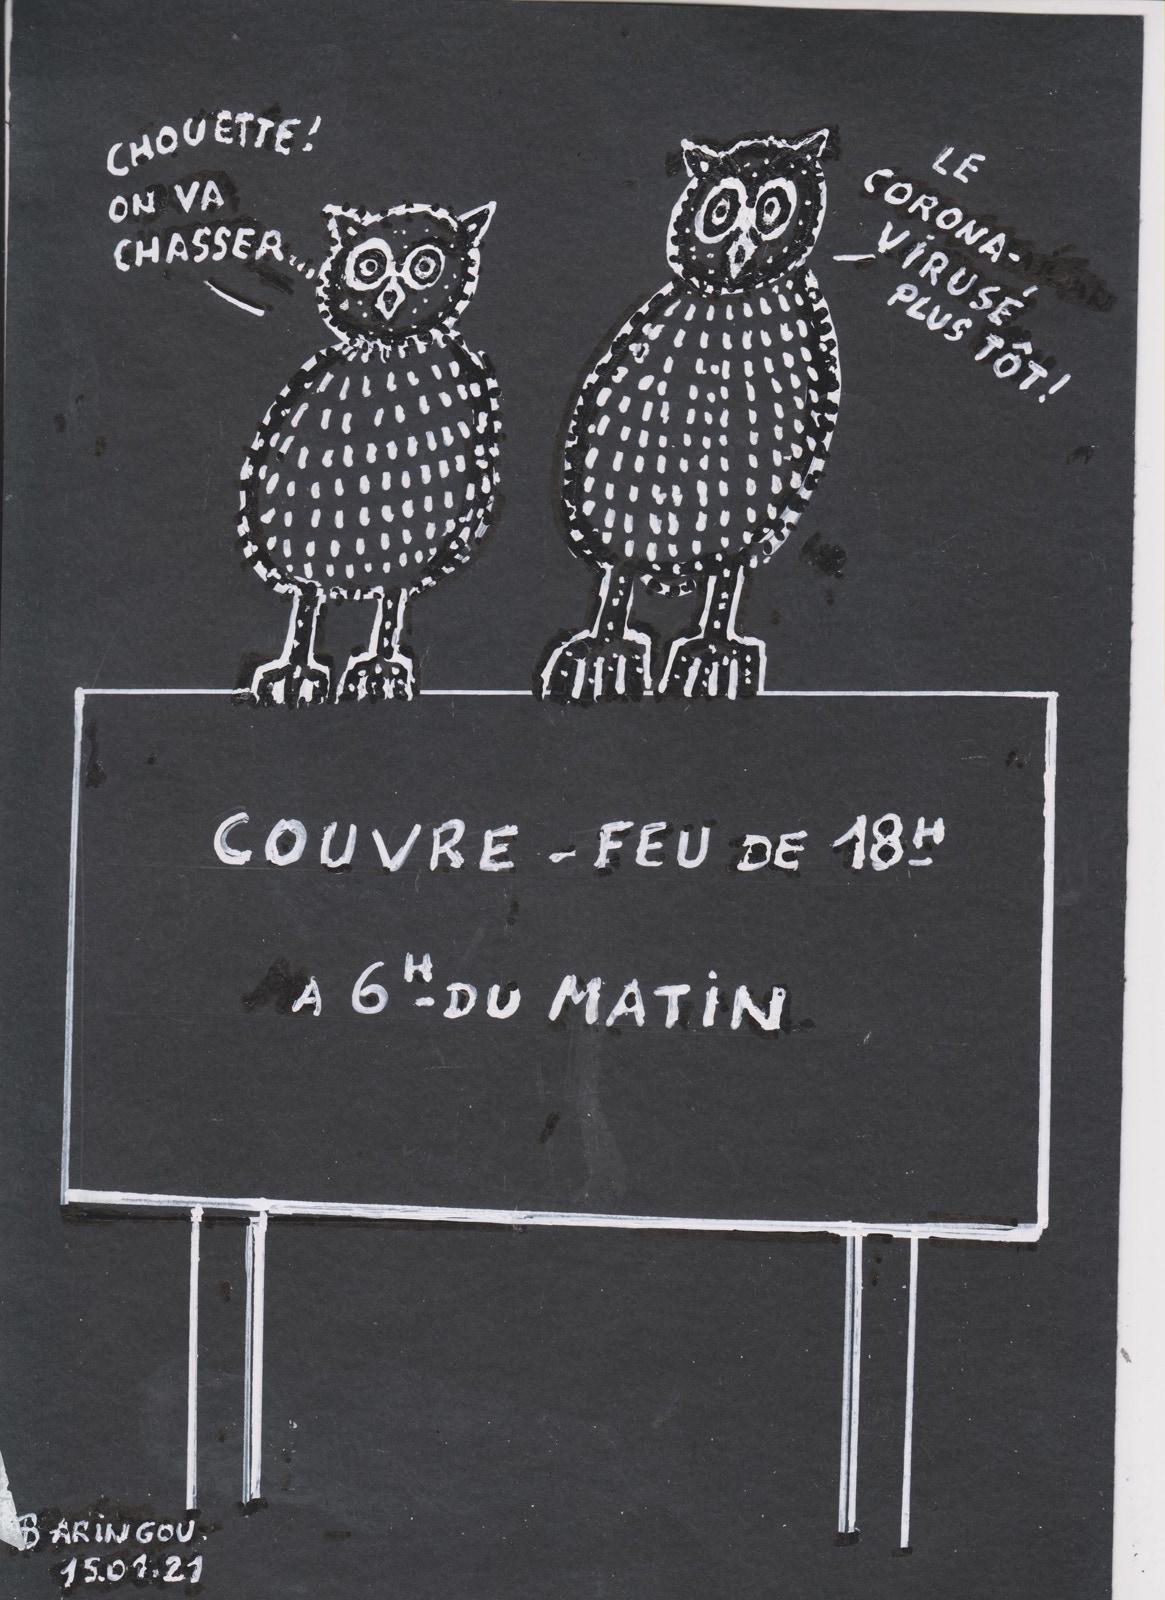 CHOUETTE!
ON VA
CHASSER...
LE
CORONA-
VIRUSÉ
PLUS TÔT!
COUVRE-FEU DE 18H
A 6H DU MATIN
BARINGOU.
15.01.21